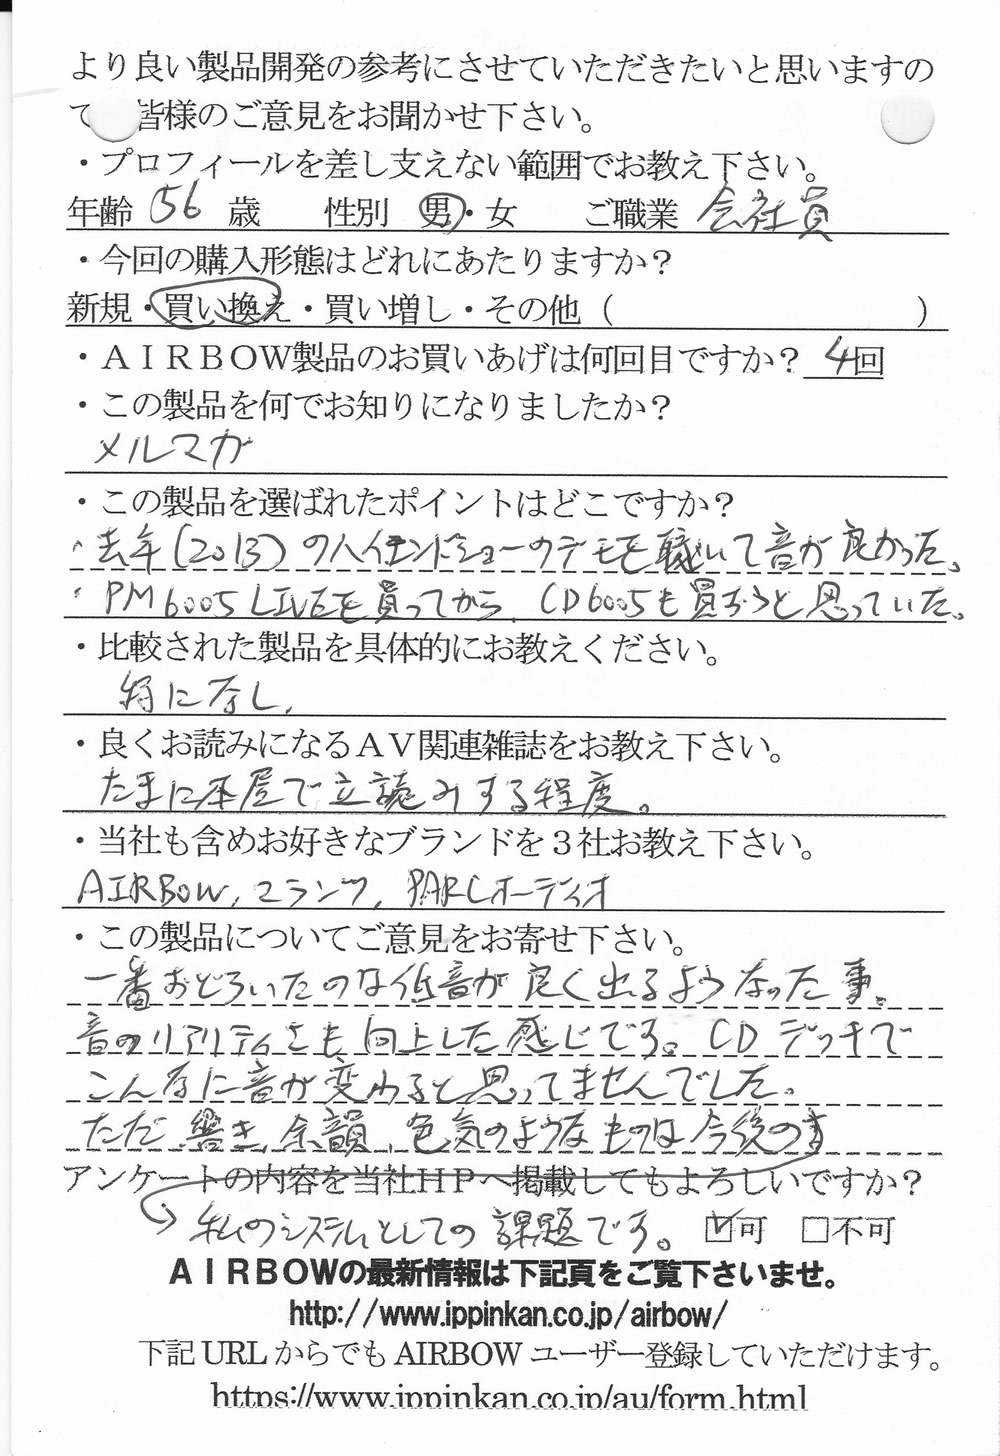 より良い製品開発の参考にさせていただきたいと思いますの
て 皆様のご意見をお聞かせ下さい。
・プロフィールを差し支えない範囲でお教え下さい。
年齢 56 歳 性別 男・女 ご職業 会社員
・今回の購入形態はどれにあたりますか？
新規・買い換え・買い増し・その他（ ）
・ＡＩＲＢＯＷ製品のお買いあげは何回目ですか？ 4回
・この製品を何でお知りになりましたか？
メルマガ
・この製品を選ばれたポイントはどこですか？
・去年(2013)のハイエンドショーのデモを聴いて音が良かった。
・PM6005 LIVEを買ってから、CD6005も買おうと思っていた。
・比較された製品を具体的にお教えください。
特になし、
・良くお読みになるＡＶ関連雑誌をお教え下さい。
たまに本屋で立読みする程度。
・当社も含めお好きなブランドを３社お教え下さい。
AIRBOW, マランツ, PARCオーディオ
・この製品についてご意見をお寄せ下さい。
一番おどろいたのな低音が良く出るようなった事。
音のリアリティさも向上した感じです。CDデッキで
こんなに音が変わると思ってませんでした。
ただ、響き、余韻、色気のようなものは今後の
アンケートの内容を当社ＨＰへ掲載してもよろしいですか？
私のシステムとしての課題です。 ☑可 □不可
ＡＩＲＢＯＷの最新情報は下記頁をご覧下さいませ。
http://www.ippinkan.co.jp/airbow/
下記 URL からでも AIRBOW ユーザー登録していただけます。
https://www.ippinkan.co.jp/au/form.html